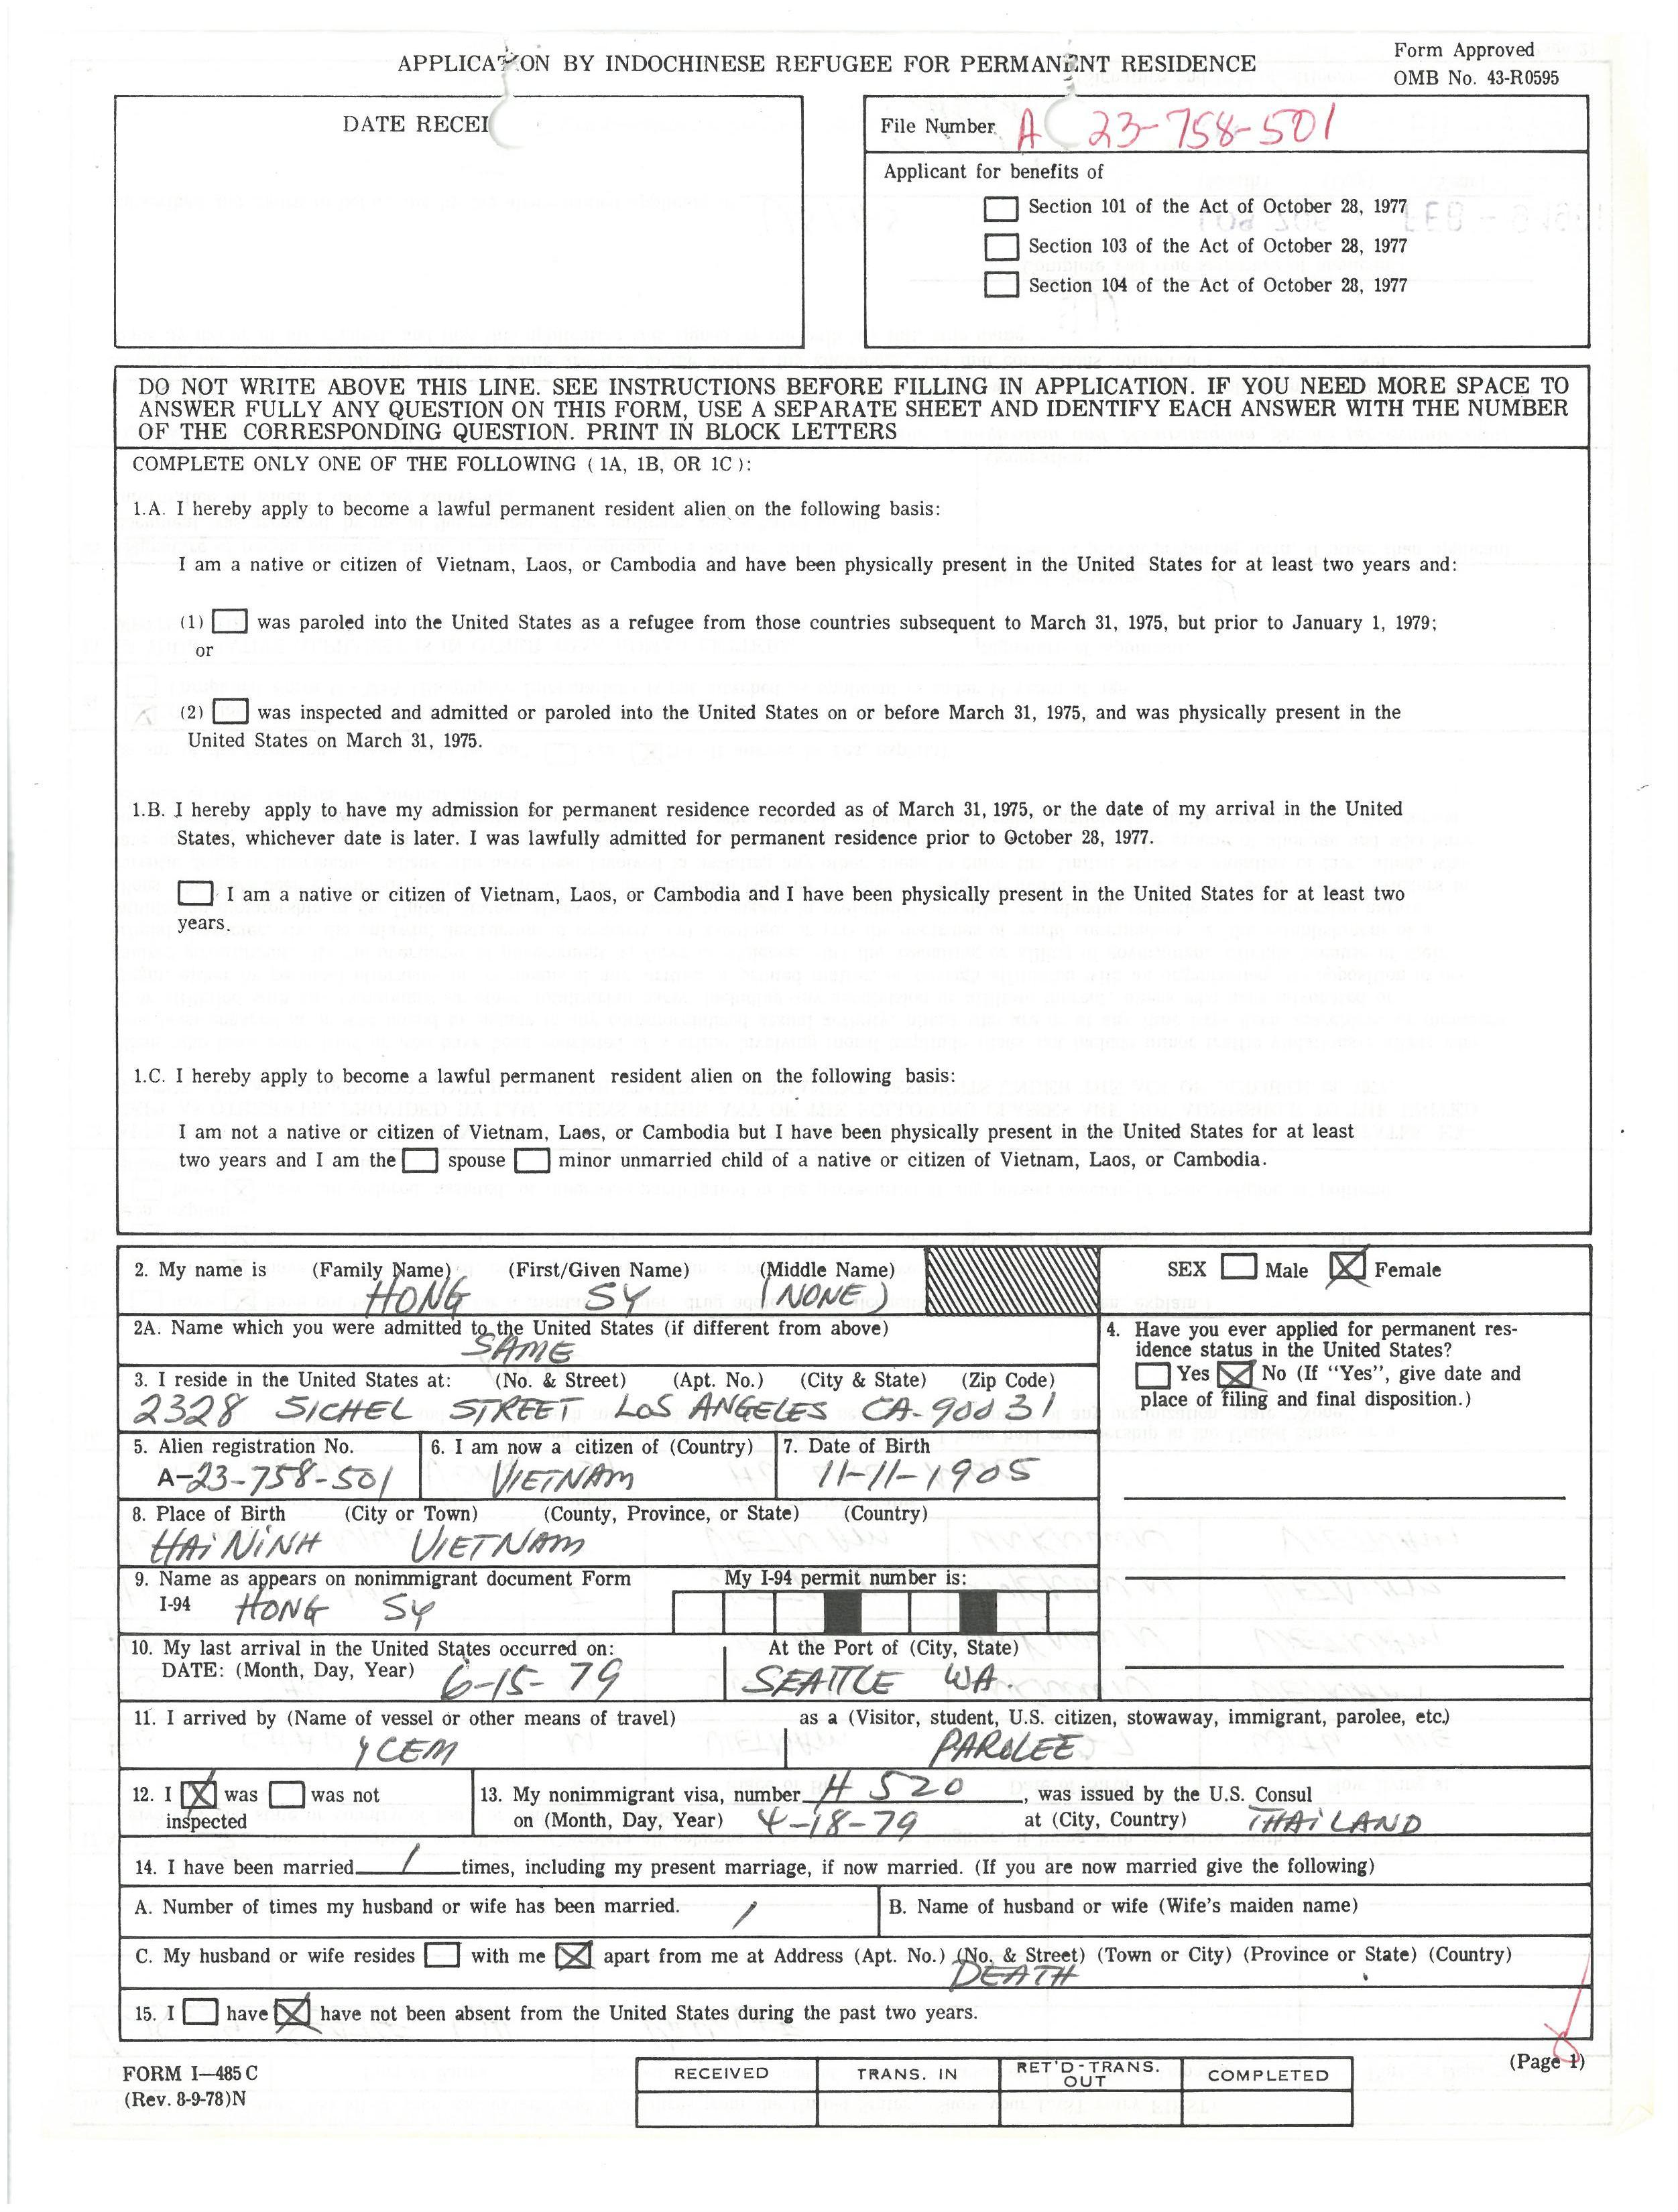 APPLICATION BY INDOCHINESE REFUGEE FOR PERMANENT RESIDENCE
Form Approved
OMB No. 43-R0595
DATE RECEI
File Number A 23-758-501
Applicant for benefits of
Section 101 of the Act of October 28, 1977
Section 103 of the Act of October 28, 1977
Section 104 of the Act of October 28, 1977
DO NOT WRITE ABOVE THIS LINE. SEE INSTRUCTIONS BEFORE FILLING IN APPLICATION. IF YOU NEED MORE SPACE TO
ANSWER FULLY ANY QUESTION ON THIS FORM, USE A SEPARATE SHEET AND IDENTIFY EACH ANSWER WITH THE NUMBER
OF THE CORRESPONDING QUESTION. PRINT IN BLOCK LETTERS
COMPLETE ONLY ONE OF THE FOLLOWING ( 1A, 1B, OR 1C ):
1.A. I hereby apply to become a lawful permanent resident alien on the following basis:
I am a native or citizen of Vietnam, Laos, or Cambodia and have been physically present in the United States for at least two years and:
(1) was paroled into the United States as a refugee from those countries subsequent to March 31, 1975, but prior to January 1, 1979;
or
(2) was inspected and admitted or paroled into the United States on or before March 31, 1975, and was physically present in the
United States on March 31, 1975.
1.B. I hereby apply to have my admission for permanent residence recorded as of March 31, 1975, or the date of my arrival in the United
States, whichever date is later. I was lawfully admitted for permanent residence prior to October 28, 1977.
I am a native or citizen of Vietnam, Laos, or Cambodia and I have been physically present in the United States for at least two
years.
1.C. I hereby apply to become a lawful permanent resident alien on the following basis:
I am not a native or citizen of Vietnam, Laos, or Cambodia but I have been physically present in the United States for at least
two years and I am the spouse minor unmarried child of a native or citizen of Vietnam, Laos, or Cambodia.
2. My name is (Family Name) (First/Given Name) (Middle Name)
HONG SY (NONE)
SEX Male X Female
2A. Name which you were admitted to the United States (if different from above)
SAME
3. I reside in the United States at: (No. & Street) (Apt. No.) (City & State) (Zip Code)
2328 SICHEL STREET LOS ANGELES CA-90031
4. Have you ever applied for permanent res-
idence status in the United States?
Yes X No (If "Yes", give date and
place of filing and final disposition.)
5. Alien registration No. 6. I am now a citizen of (Country) 7. Date of Birth
A-23-758-501 VIETNAM 11-11-1905
8. Place of Birth (City or Town) (County, Province, or State) (Country)
HAI NINH VIETNAM
9. Name as appears on nonimmigrant document Form My I-94 permit number is:
I-94 HONG SY
10. My last arrival in the United States occurred on: At the Port of (City, State)
DATE: (Month, Day, Year) 6-15-79 SEATTLE WA.
11. I arrived by (Name of vessel or other means of travel) as a (Visitor, student, U.S. citizen, stowaway, immigrant, parolee, etc.)
YCEM PAROLEE
12. I X was was not 13. My nonimmigrant visa, number H 520, was issued by the U.S. Consul
inspected on (Month, Day, Year) 4-18-79 at (City, Country) THAILAND
14. I have been married 1 times, including my present marriage, if now married. (If you are now married give the following)
A. Number of times my husband or wife has been married. 1 B. Name of husband or wife (Wife's maiden name)
C. My husband or wife resides with me X apart from me at Address (Apt. No.) (No. & Street) (Town or City) (Province or State) (Country)
DEATH
15. I have X have not been absent from the United States during the past two years.
FORM I—485 C
(Rev. 8-9-78)N
RECEIVED TRANS. IN RET'D-TRANS. OUT COMPLETED
(Page 1)